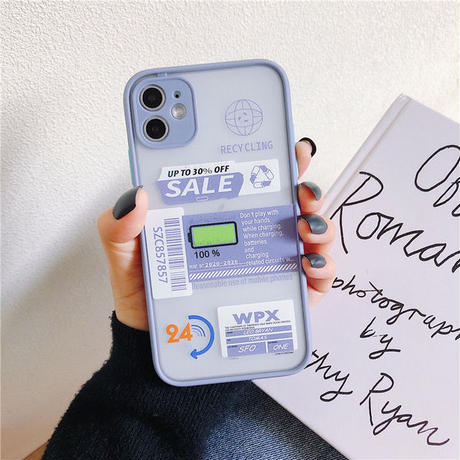 RECYCLING
UP TO 30% OFF
SALE
SZC857857
Don't play with
your hands
while charging.
When charging,
batteries
and
charging
related circuits
100 %
2020-2026
Reasonable use of mobile phones
24
WPX
LEO BRYAN
TOMAS
SFO ONE
Of
Roman
photograph
by
thy Ryan